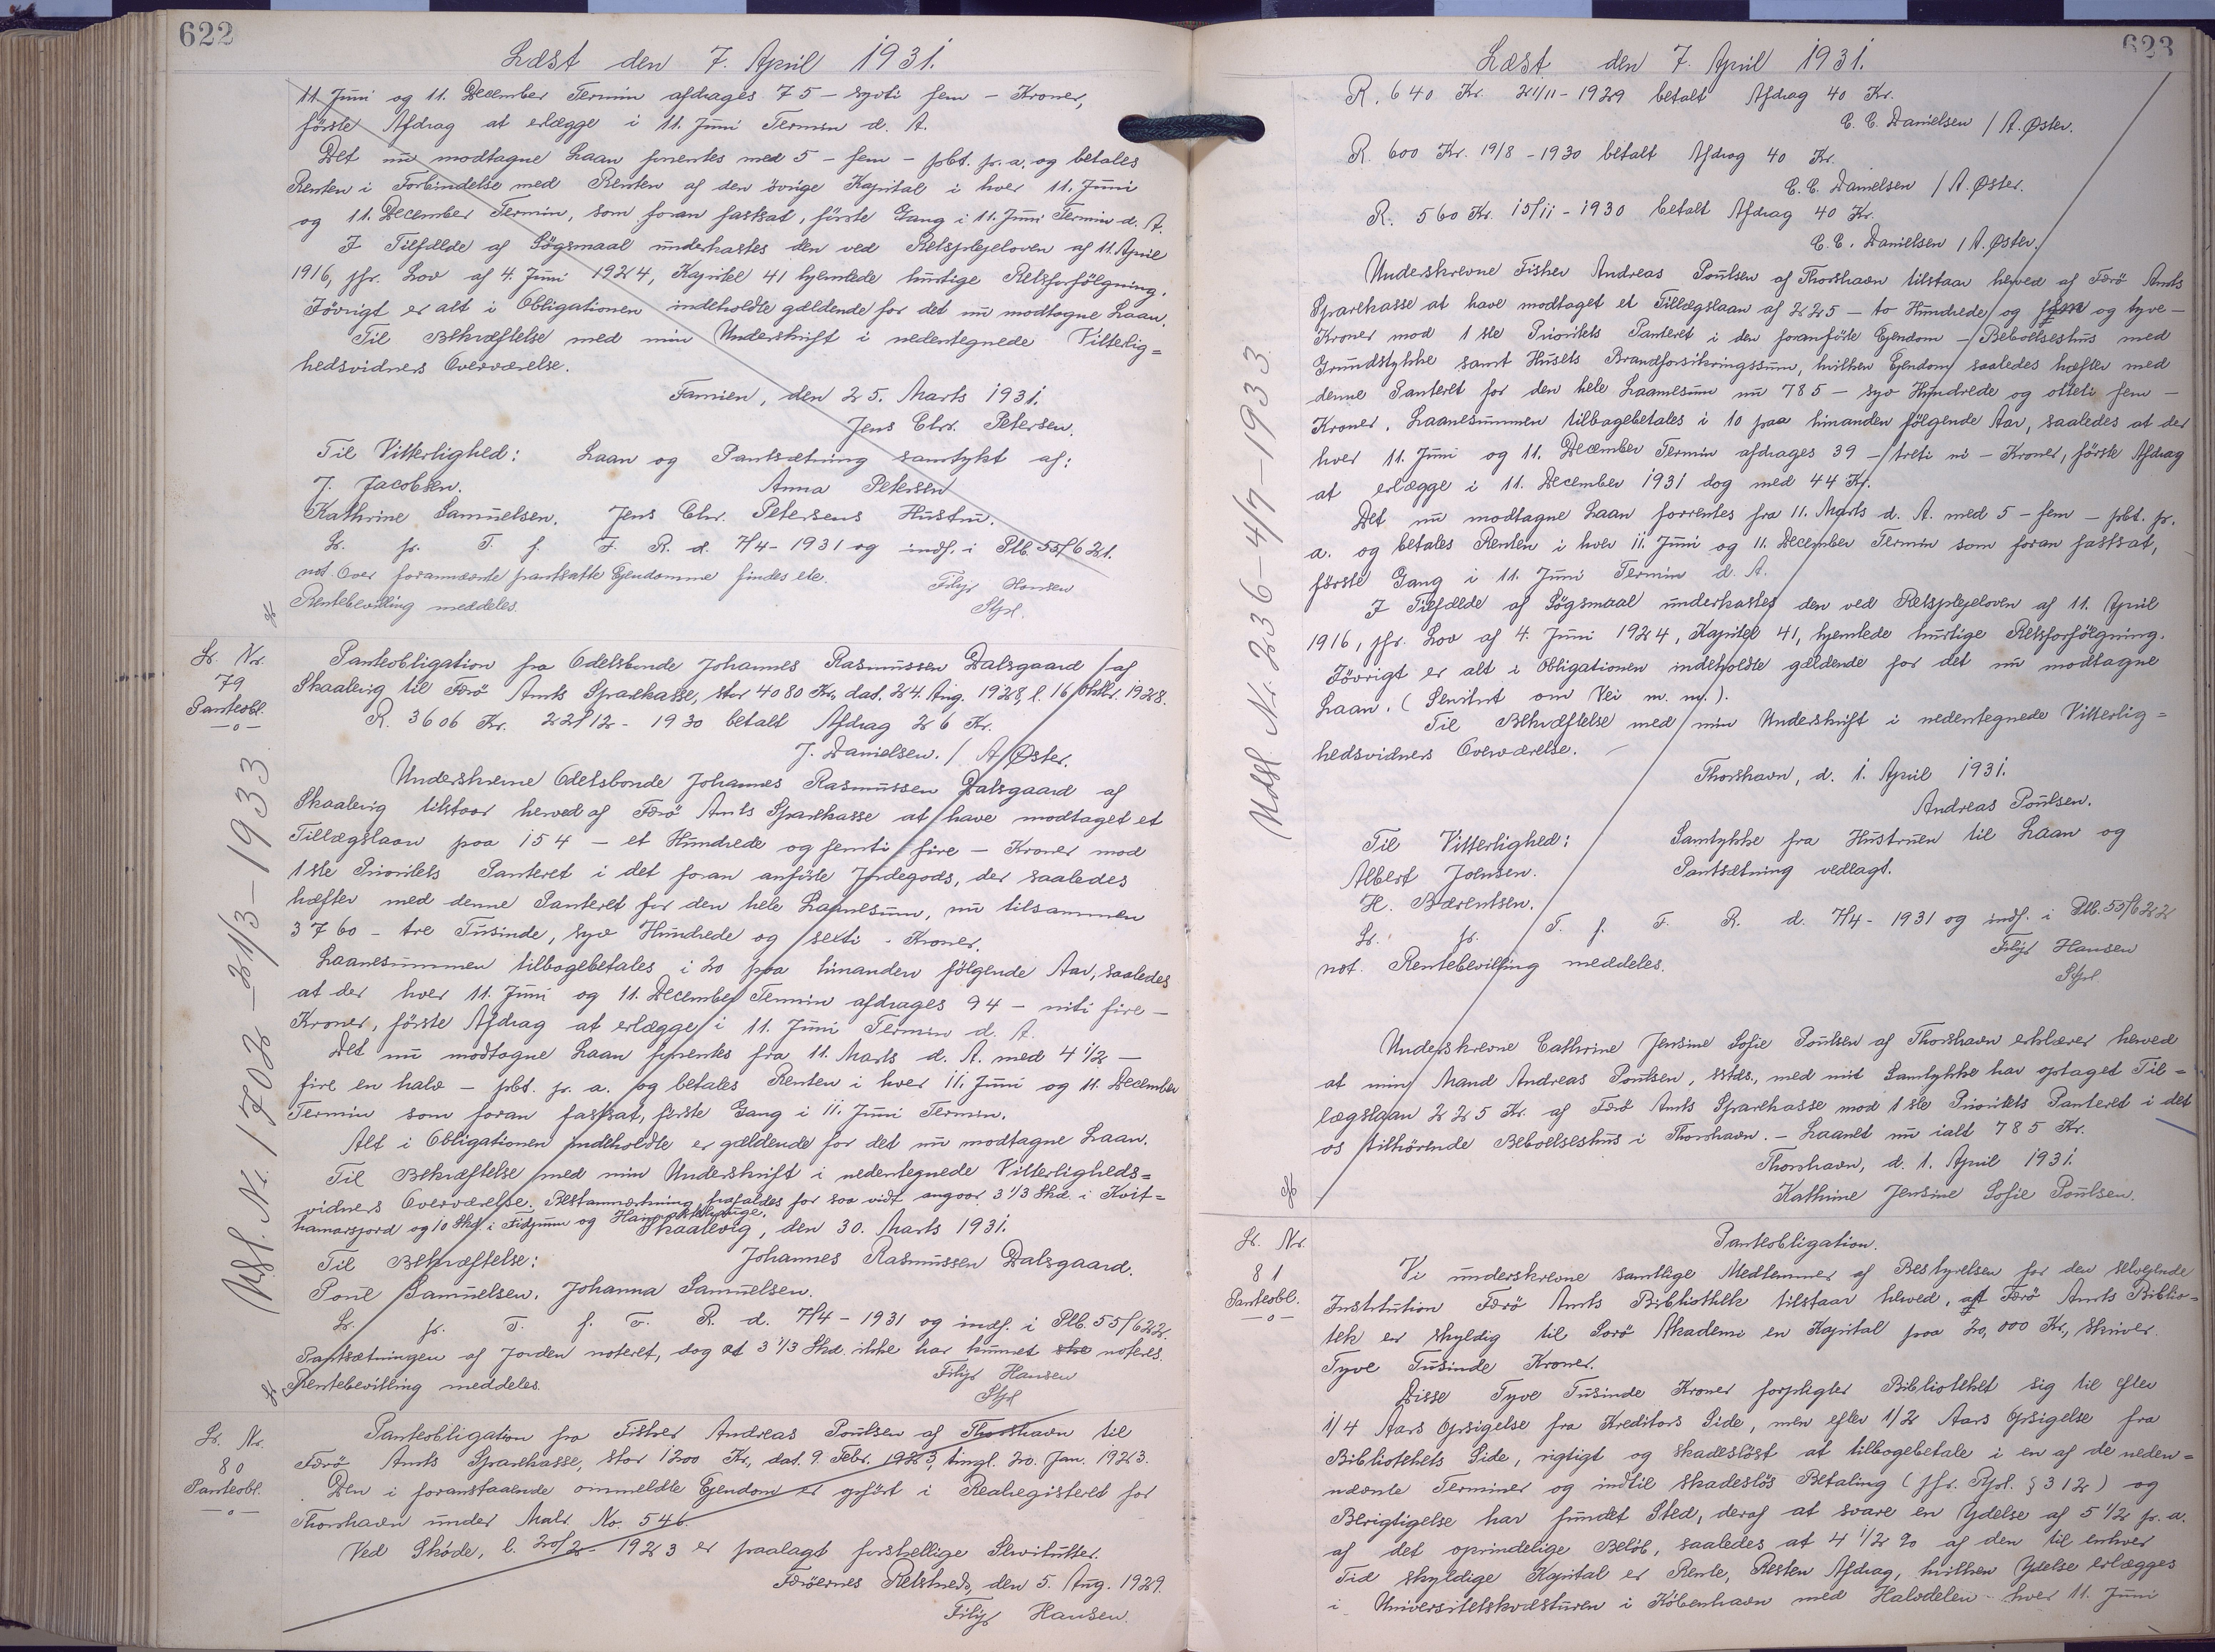 622
Læst den 7. April 1931.
11. Juni og 11. December Termin afdrages 75 – syvti fem – Kroner,
første Afdrag at erlægge i 11. Juni Termin d. A.
Det nu modtagne Laan forrentes med 5 – fem – pct. pr. a. og betales
Renten i Forbindelse med Renten af den øvrige Kapital i hver 11. Juni
og 11. December Termin, som foran fastsat, første Gang i 11. Juni Termin d. A.
I Tilfælde af Søgsmaal underkastes den ved Retsplejeloven af 11. April
1916, jfr. Lov af 4. Juni 1924, Kapitel 41 hjemlede hurtige Retsforfølgning.
Iøvrigt er alt i Obligationen indeholdte gældende for det nu modtagne Laan.
Til Bekræftelse med min Underskrift i nedentegnede Vitterlig=
hedsvidners Overværelse.
Famien, den 25. Marts 1931.
Jens Chr. Petersen.
Til Vitterlighed: Laan og Pantsætning samtykt af:
J. Jacobsen. Anna Petersen
Kathrine Samuelsen. Jens Chr. Petersens Hustru.
L. pr. T. f. F. R. d. 7/4 - 1931 og indf. i Ptb. 55/621.
not. Over forannævnte pantsatte Ejendomme findes ete. Filip Hansen
Rentebevilling meddeles. Stpl.
L. Nr. 79 Panteobl. —o—
Panteobligation fra Odelsbonde Johannes Rasmussen Dalsgaard af
Skaalevig til Færø Amts Sparekasse, stor 4080 Kr., dat. 24. Aug. 1928, l. 16/Oktbr. 1928.
R. 3606 Kr. 22/12 - 1930 betalt Afdrag 26 Kr.
J. Danielsen. / A. Øster.
Underskrevne Odelsbonde Johannes Rasmussen Dalsgaard af
Skaalevig tilstaar herved af Færø Amts Sparekasse at have modtaget et
Tillægslaan paa 154 – et Hundrede og femti fire – Kroner mod
1ste Prioritets Panteret i det foran anførte Jordegods, der saaledes
hæfter med denne Panteret for den hele Laanesum, nu tilsammen
3760 – tre Tusinde, syv Hundrede og seksti - Kroner.
Laanesummen tilbagebetales i 20 paa hinanden følgende Aar, saaledes
at der hver 11. Juni og 11. December Termin afdrages 94 – niti fire –
Kroner, første Afdrag at erlægge i 11. Juni Termin d. A.
Det nu modtagne Laan forrentes fra 11. Marts d. A. med 4 1/2 —
fire en halv – pct. pr. a. og betales Renten i hver 11. Juni og 11. December
Termin som foran fastsat, første Gang i 11. Juni Termin.
Alt i Obligationen indeholdte er gældende for det nu modtagne Laan.
Til Bekræftelse med min Underskrift i nedentegnede Vitterligheds=
vidners Overværelse. Retsanmærkning frafaldes for saa vidt angaar 3 1/3 Skd. i Kvit=
hamarsjord og 10 Skd. i Fidjunum og
Skaalevig, den 30. Marts 1931.
Til Bekræftelse: Johannes Rasmussen Dalsgaard.
Poul Samuelsen. Johanna Samuelsen.
L. pr. T. f. F. R. d. 7/4 - 1931 og indf. i Ptb. 55/622.
Pantsætningen af Jorden noteret, dog at 3 1/3 Skd. ikke har kunnet ske noteres.
Rentebevilling meddeles. Filip Hansen
Stpl
Udsl. Nr. 1702 – 31/3 – 1933
L. Nr. 80 Panteobl. —o—
Panteobligation fra Fisker Andreas Poulsen af Thorshavn til
Færø Amts Sparekasse, stor 1200 Kr., dat. 9. Febr. 1923, tingl. 20. Jan. 1923.
Den i foranstaaende ommeldte Ejendom er opført i Realregisteret for
Thorshavn under Matr. No. 546
Ved Skøde, l. 20/2 - 1923 er paalagt forskellige Servitutter.
Færøernes Retskreds, den 5. Aug. 1929.
Filip Hansen.
623
Læst den 7. April 1931.
R. 640 Kr. 21/11 - 1929 betalt Afdrag 40 Kr.
C. C. Danielsen / A. Øster.
R. 600 Kr. 19/8 - 1930 betalt Afdrag 40 Kr.
C. C. Danielsen / A. Øster.
R. 560 Kr. 15/11 - 1930 betalt Afdrag 40 Kr.
C. C. Danielsen / A. Øster.
Underskrevne Fisker Andreas Poulsen af Thorshavn tilstaar herved af Færø Amts
Sparekasse at have modtaget et Tillægslaan af 225 – to Hundrede og fem og tyve –
Kroner mod 1ste Prioritets Panteret i den foranførte Ejendom – Beboelseshus med
Grundstykke samt Husets Brandforsikringssum, hvilken Ejendom saaledes hæfter med
denne Panteret for den hele Laanesum nu 785 – syv Hundrede og otteti fem –
Kroner. Laanesummen tilbagebetales i 10 paa hinanden følgende Aar, saaledes at der
hver 11. Juni og 11. December Termin afdrages 39 – treti ni – Kroner, første Afdrag
at erlægge i 11. December 1931 dog med 44 Kr.
Det nu modtagne Laan forrentes fra 11. Marts d. A. med 5 – fem – pct. pr.
a. og betales Renten i hver 11. Juni og 11. December Termin som foran fastsat,
første Gang i 11. Juni Termin d. A.
I Tilfælde af Søgsmaal underkastes den ved Retsplejeloven af 11. April
1916, jfr. Lov af 4. Juni 1924, Kapitel 41, hjemlede hurtige Retsforfølgning.
Iøvrigt er alt i Obligationen indeholdte gældende for det nu modtagne
Laan. (Servitut om Vei m. m.).
Til Bekræftelse med min Underskrift i nedentegnede Vitterlig=
hedsvidners Overværelse. –
Thorshavn, d. 1. April 1931.
Andreas Poulsen.
Til Vitterlighed: Samtykke fra Hustruen til Laan og
Albert Joensen. Pantsætning vedlagt.
H. Bærentsen.
L. pr. T. f. F. R. d. 7/4 - 1931 og indf. i Ptb. 55/622
not. Rentebevilling meddeles. Filip Hansen
Stpl.
Underskrevne Cathrine Jensine Sofie Poulsen af Thorshavn erklærer herved
at min Mand Andreas Poulsen, sstds., med mit Samtykke har optaget Til=
lægslaan 225 Kr. af Færø Amts Sparekasse mod 1ste Prioritets Panteret i det
os tilhørende Beboelseshus i Thorshavn. – Laanet nu ialt 785 Kr.
Thorshavn, d. 1. April 1931.
Kathrine Jensine Sofie Poulsen.
Udsl. Nr. 2236 – 4/7 – 1933
L. Nr. 81 Panteobl. —o—
Panteobligation.
Vi underskrevne samtlige Medlemmer af Bestyrelsen for den selvejende
Institution Færø Amts Bibliothek tilstaar herved, at Færø Amts Biblio=
tek er skyldig til Sorø Akademi en Kapital paa 20,000 Kr., skriver
Tyve Tusinde Kroner.
Disse Tyve Tusinde Kroner forpligter Biblioteket sig til efter
1/4 Aars Opsigelse fra Kreditors Side, men efter 1/2 Aars Opsigelse fra
Bibliotekets Side, rigtigt og skadesløst at tilbagebetale i en af de neden=
nævnte Terminer og indtil skadesløs Betaling (jfr. Rpl. § 312) og
Berigtigelse har fundet Sted, deraf at svare en Ydelse af 5 1/2 pr. a.
af det oprindelige Beløb, saaledes at 4 1/2 % af den til enhver
Tid skyldige Kapital er Rente, Resten Afdrag, hvilken Ydelse erlægges
i Universitetskvæsturen i København med Halvdelen hver 11. Juni